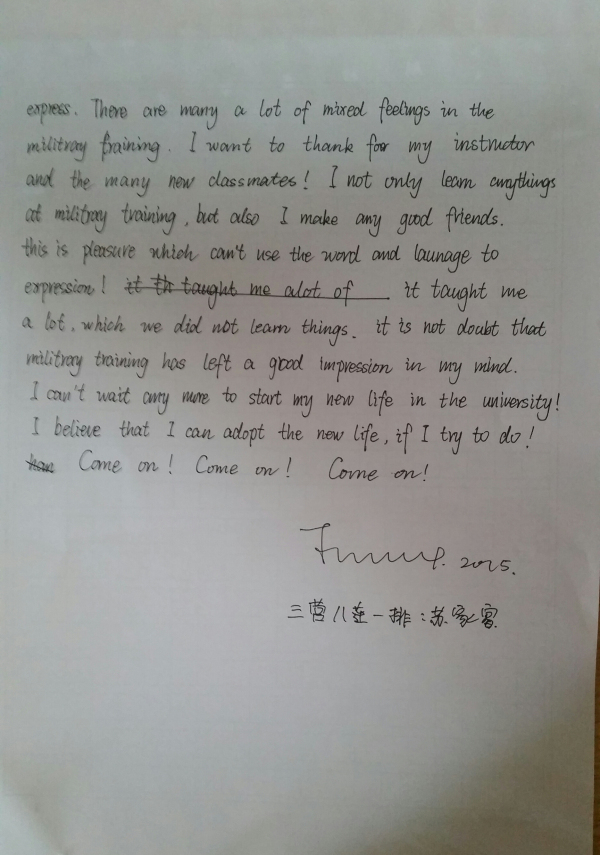 express. There are many a lot of mixed feelings in the
militray training. I want to thank for my instructor
and the many new classmates! I not only learn anythings
at militray training, but also I make any good friends.
this is pleasure which can't use the word and launage to
expression! it th taught me alot of it taught me
a lot, which we did not learn things. it is not doubt that
militray training has left a good impression in my mind.
I can't wait any more to start my new life in the university!
I believe that I can adopt the new life, if I try to do!
Come on! Come on! Come on!
2015.
三营八连一排：苏家富